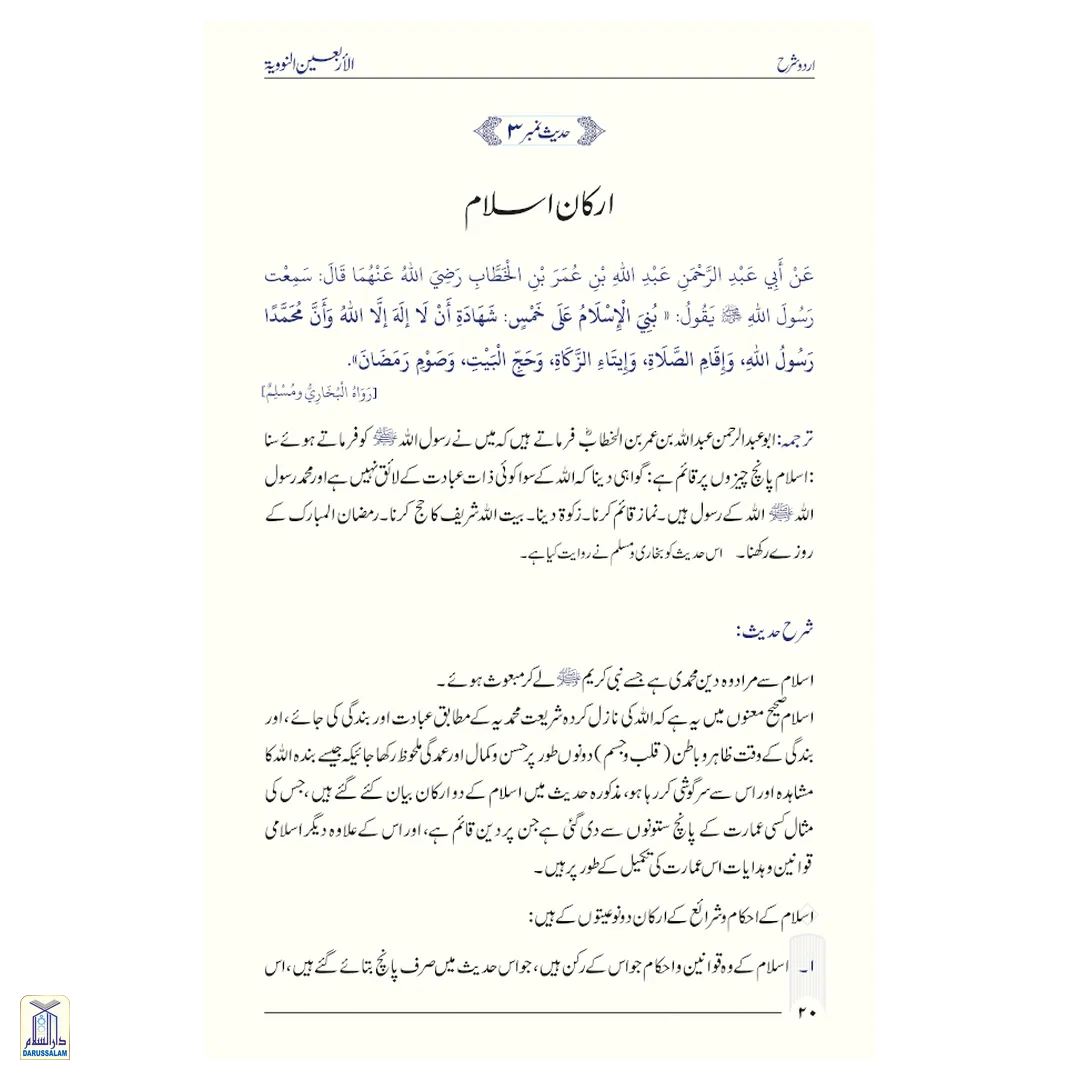 اردو شرح
الأربعين النووية
حدیث نمبر ۳
ارکان اسلام
عَنْ أَبِي عَبْدِ الرَّحْمَنِ عَبْدِ اللهِ بْنِ عُمَرَ بْنِ الْخَطَّابِ رَضِيَ اللهُ عَنْهُمَا قَالَ: سَمِعْت
رَسُولَ اللهِ ﷺ يَقُولُ: « بُنِيَ الْإِسْلَامُ عَلَى خَمْسٍ: شَهَادَةِ أَنْ لَا إلَهَ إلَّا اللهُ وَأَنَّ مُحَمَّدًا
رَسُولُ اللهِ، وَإِقَامِ الصَّلَاةِ، وَإِيتَاءِ الزَّكَاةِ، وَحَجِّ الْبَيْتِ، وَصَوْمِ رَمَضَانَ».
[رَوَاهُ الْبُخَارِيُّ ومُسْلِمٌ]
ترجمہ: ابوعبدالرحمن عبداللہ بن عمر بن الخطابؓ فرماتے ہیں کہ میں نے رسول اللہ ﷺ کو فرماتے ہوئے سنا
:اسلام پانچ چیزوں پر قائم ہے: گواہی دینا کہ اللہ کے سوا کوئی ذات عبادت کے لائق نہیں ہے اور محمد رسول
اللہ ﷺ اللہ کے رسول ہیں۔ نماز قائم کرنا۔ زکوۃ دینا۔ بیت اللہ شریف کا حج کرنا۔ رمضان المبارک کے
روزے رکھنا۔ اس حدیث کو بخاری و مسلم نے روایت کیا ہے۔
شرح حدیث:
اسلام سے مراد وہ دین محمدی ہے جسے نبی کریم ﷺ لے کر مبعوث ہوئے۔
اسلام صحیح معنوں میں یہ ہے کہ اللہ کی نازل کردہ شریعت محمدیہ کے مطابق عبادت اور بندگی کی جائے، اور
بندگی کے وقت ظاہر و باطن (قلب و جسم) دونوں طور پر حسن و کمال اور عمدگی ملحوظ رکھا جائیکہ جیسے بندہ اللہ کا
مشاہدہ اور اس سے سرگوشی کر رہا ہو، مذکورہ حدیث میں اسلام کے دو ارکان بیان کئے گئے ہیں، جس کی
مثال کسی عمارت کے پانچ ستونوں سے دی گئی ہے جن پر دین قائم ہے، اور اس کے علاوہ دیگر اسلامی
قوانین و ہدایات اس عمارت کی تکمیل کے طور پر ہیں۔
اسلام کے احکام و شرائع کے ارکان دو نوعیتوں کے ہیں:
۱۔ اسلام کے وہ قوانین و احکام جو اس کے رکن ہیں، جو اس حدیث میں صرف پانچ بتائے گئے ہیں، اس
۲۰
دار السلام
DARUSSALAM